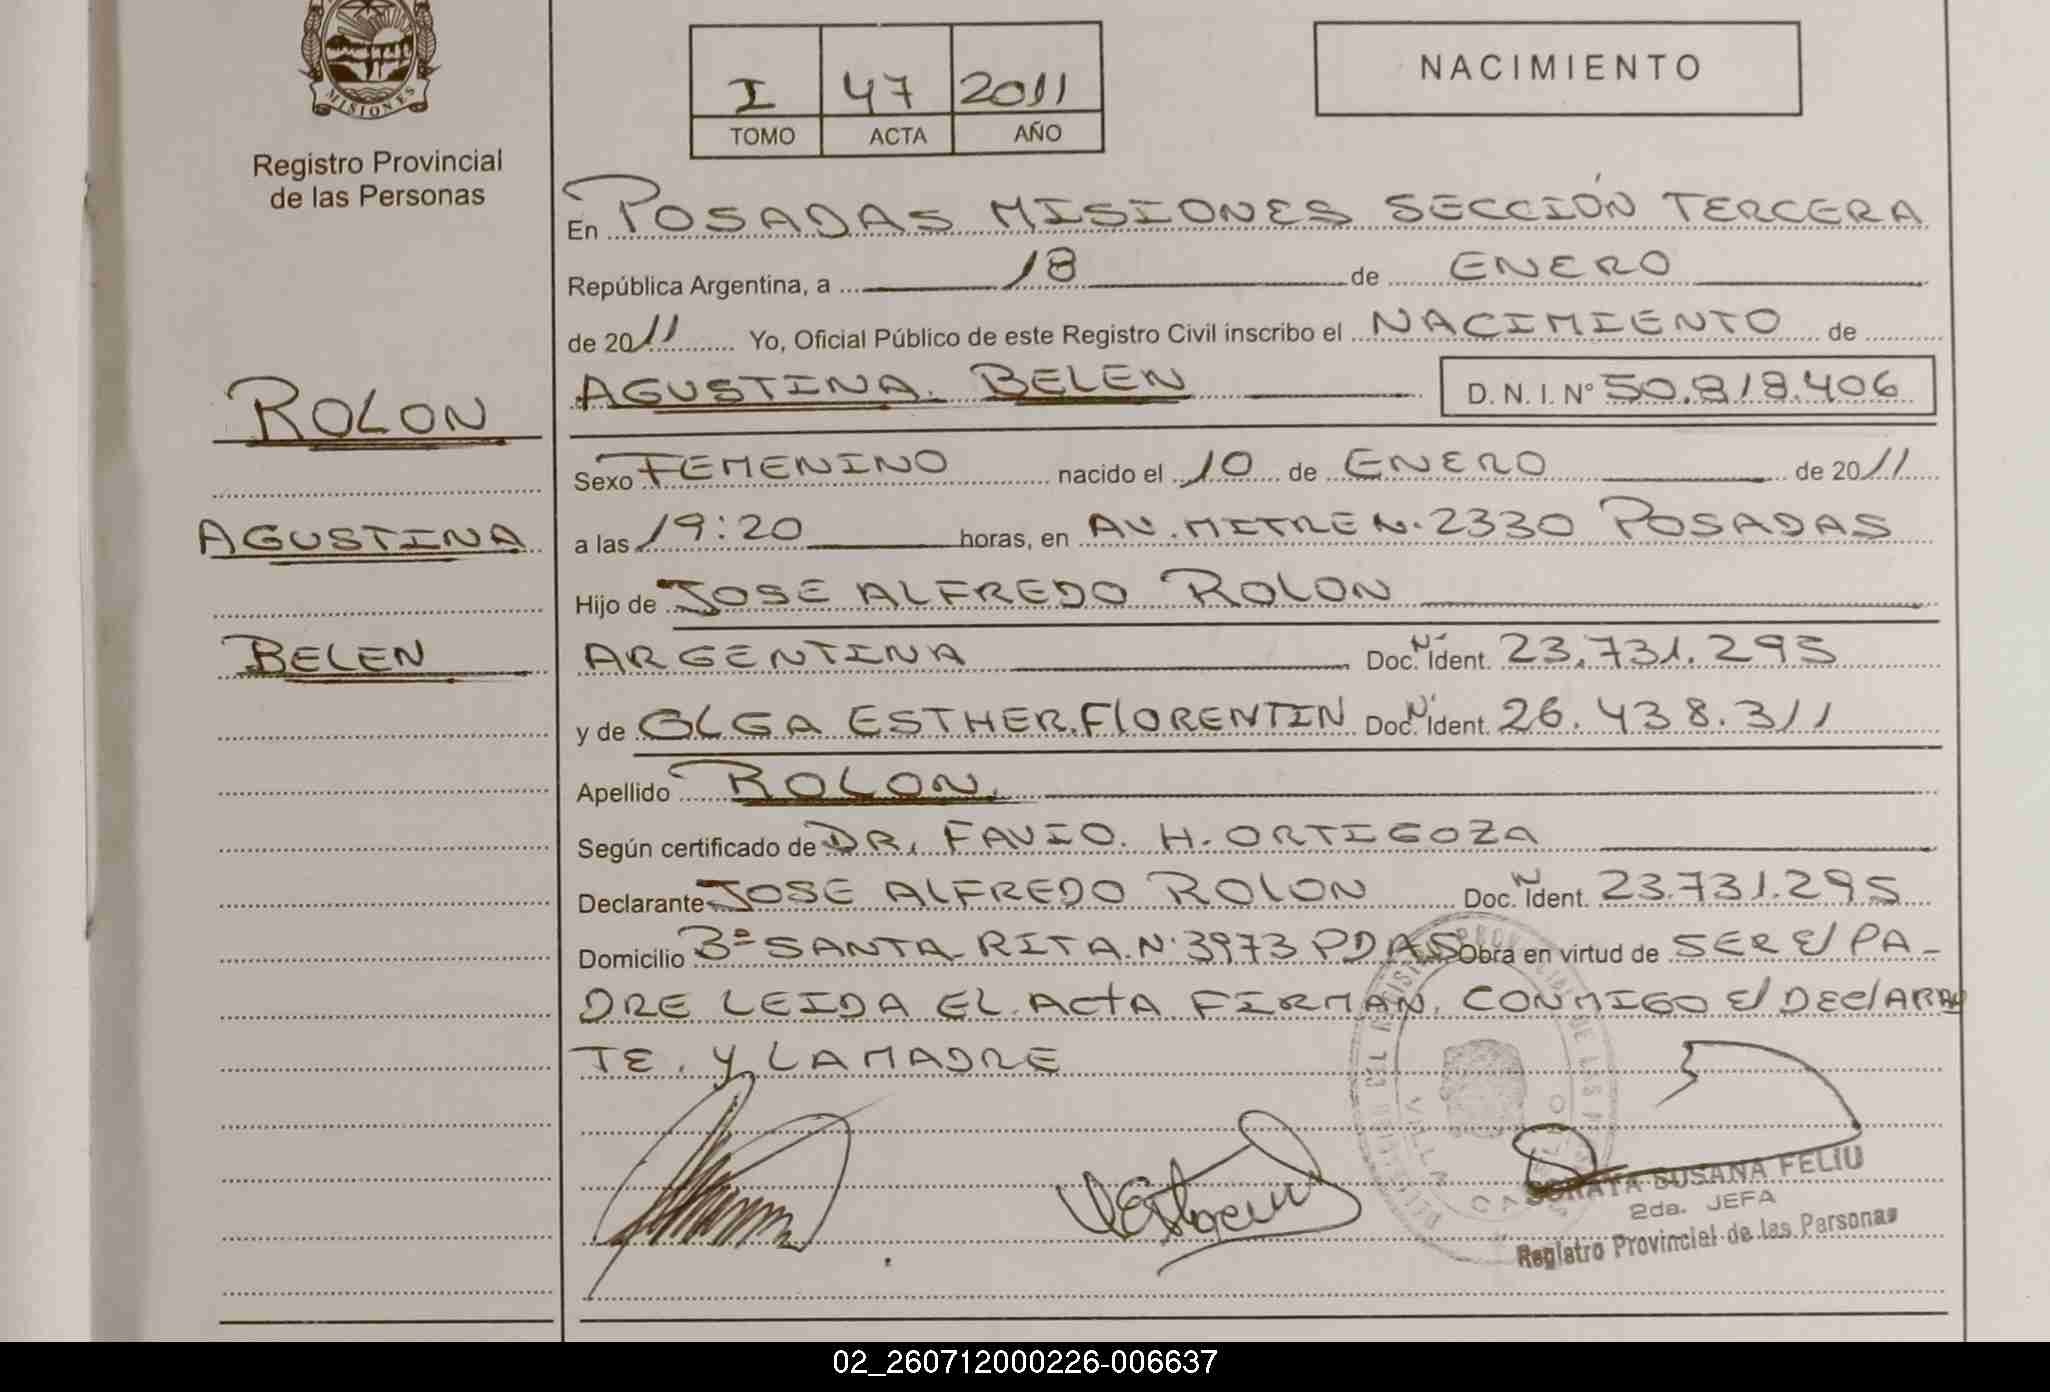 MISIONES
Registro Provincial
de las Personas
I 47 2011
TOMO ACTA AÑO
NACIMIENTO
En POSADAS MISIONES SECCIÓN TERCERA
República Argentina, a 18 de ENERO
de 2011 Yo, Oficial Público de este Registro Civil inscribo el NACIMIENTO de
AGUSTINA. BELEN D. N. I. Nº 50.818.406
ROLON
AGUSTINA
BELEN
Sexo FEMENINO nacido el 10 de ENERO de 2011
a las 19:20 horas, en AV. MITRE N. 2330 POSADAS
Hijo de JOSE ALFREDO ROLON
ARGENTINA Doc. N Ident. 23.731.295
y de OLGA ESTHER. FlORENTIN Doc. N Ident. 26.438.311
Apellido ROLON.
Según certificado de DR. FAVIO. H. ORTIGOZA
Declarante JOSE ALFREDO ROLON Doc. N Ident. 23.731.295
Domicilio Bº SANTA RITA. N. 3973 PDAS Obra en virtud de SER El PA-
DRE LEIDA EL ACTA FIRMAN. CONMIGO El DEClARAN
TE. Y LA MADRE
VILLA CA
SORAYA SUSANA FELIU
2da. JEFA
Registro Provincial de las Personas
02_260712000226-006637